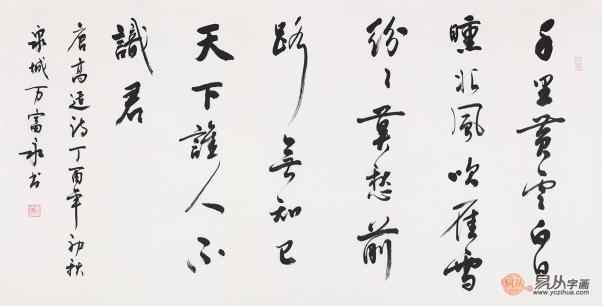 千里黄雲白日
曛北風吹雁雪
紛紛莫愁前
路無知己
天下誰人不
識君
唐高適詩丁酉年初秋
泉城万富永书
易从字画
www.yczihua.com